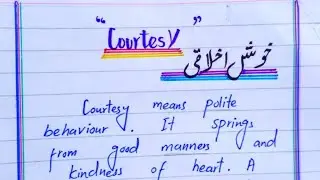 "Courtesy"
خوش اخلاقی
Courtesy means polite
behaviour. It springs
from good manners and
kindness of heart. A